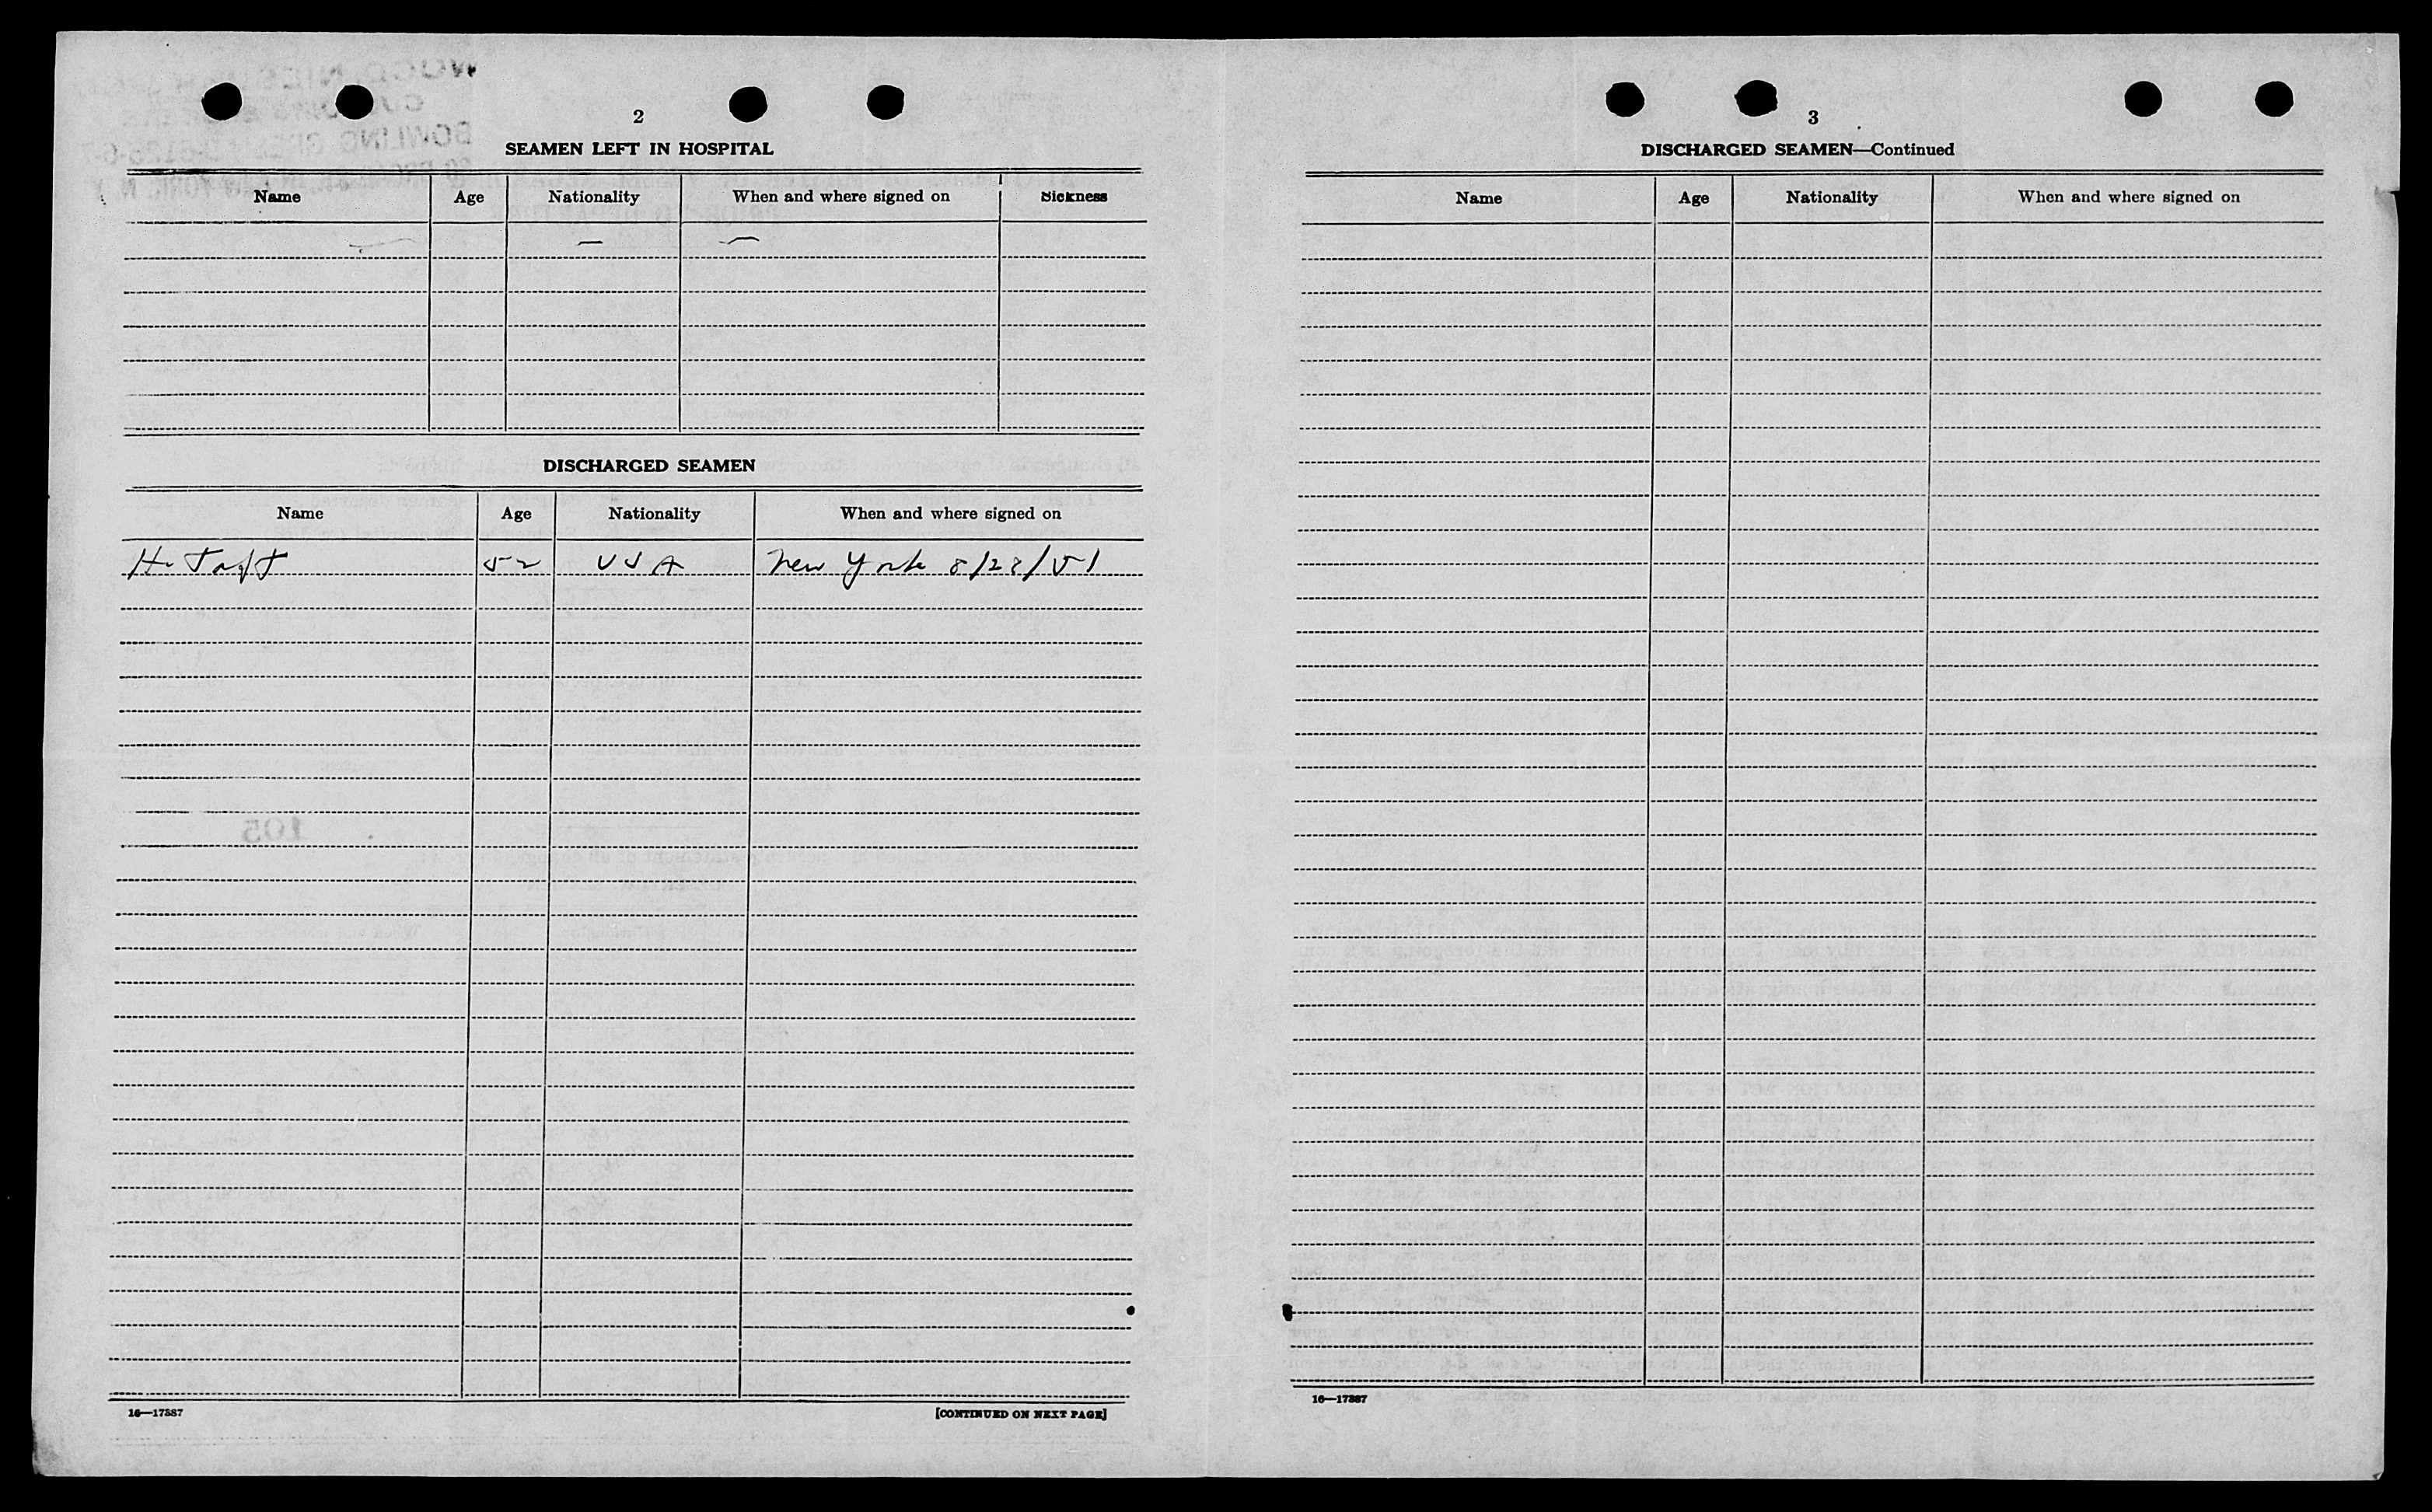 2
SEAMEN LEFT IN HOSPITAL
Name Age Nationality When and where signed on Sickness
— — —
DISCHARGED SEAMEN
Name Age Nationality When and where signed on
H. Taft 52 USA New York 8/28/51
16—17387
[CONTINUED ON NEXT PAGE]
3
DISCHARGED SEAMEN—Continued
Name Age Nationality When and where signed on
16—17387